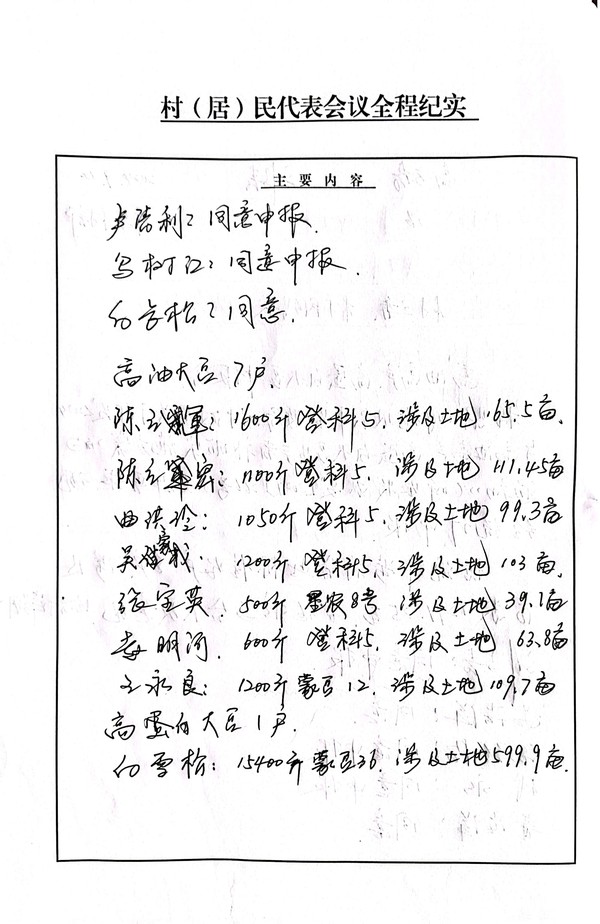 村（居）民代表会议全程纪实
主要内容
卢浩利：同意申报.
马树江：同意申报.
白雪松：同意.
高油大豆7户.
陈立军：1600斤登科5.涉及土地165.5亩.
陈立：1100斤登科5.涉及土地111.45亩
曲洪玲：1050斤登科5.涉及土地99.3亩
吴 1200斤登科5.涉及土地103亩.
张宝英.500斤星农8号 涉及土地39.1亩
明河.600斤登科5.涉及土地63.8亩
王永良：1200斤蒙豆12.涉及土地109.7亩
高蛋白大豆1户.
白雪松：15400斤蒙豆36.涉及土地599.9亩.